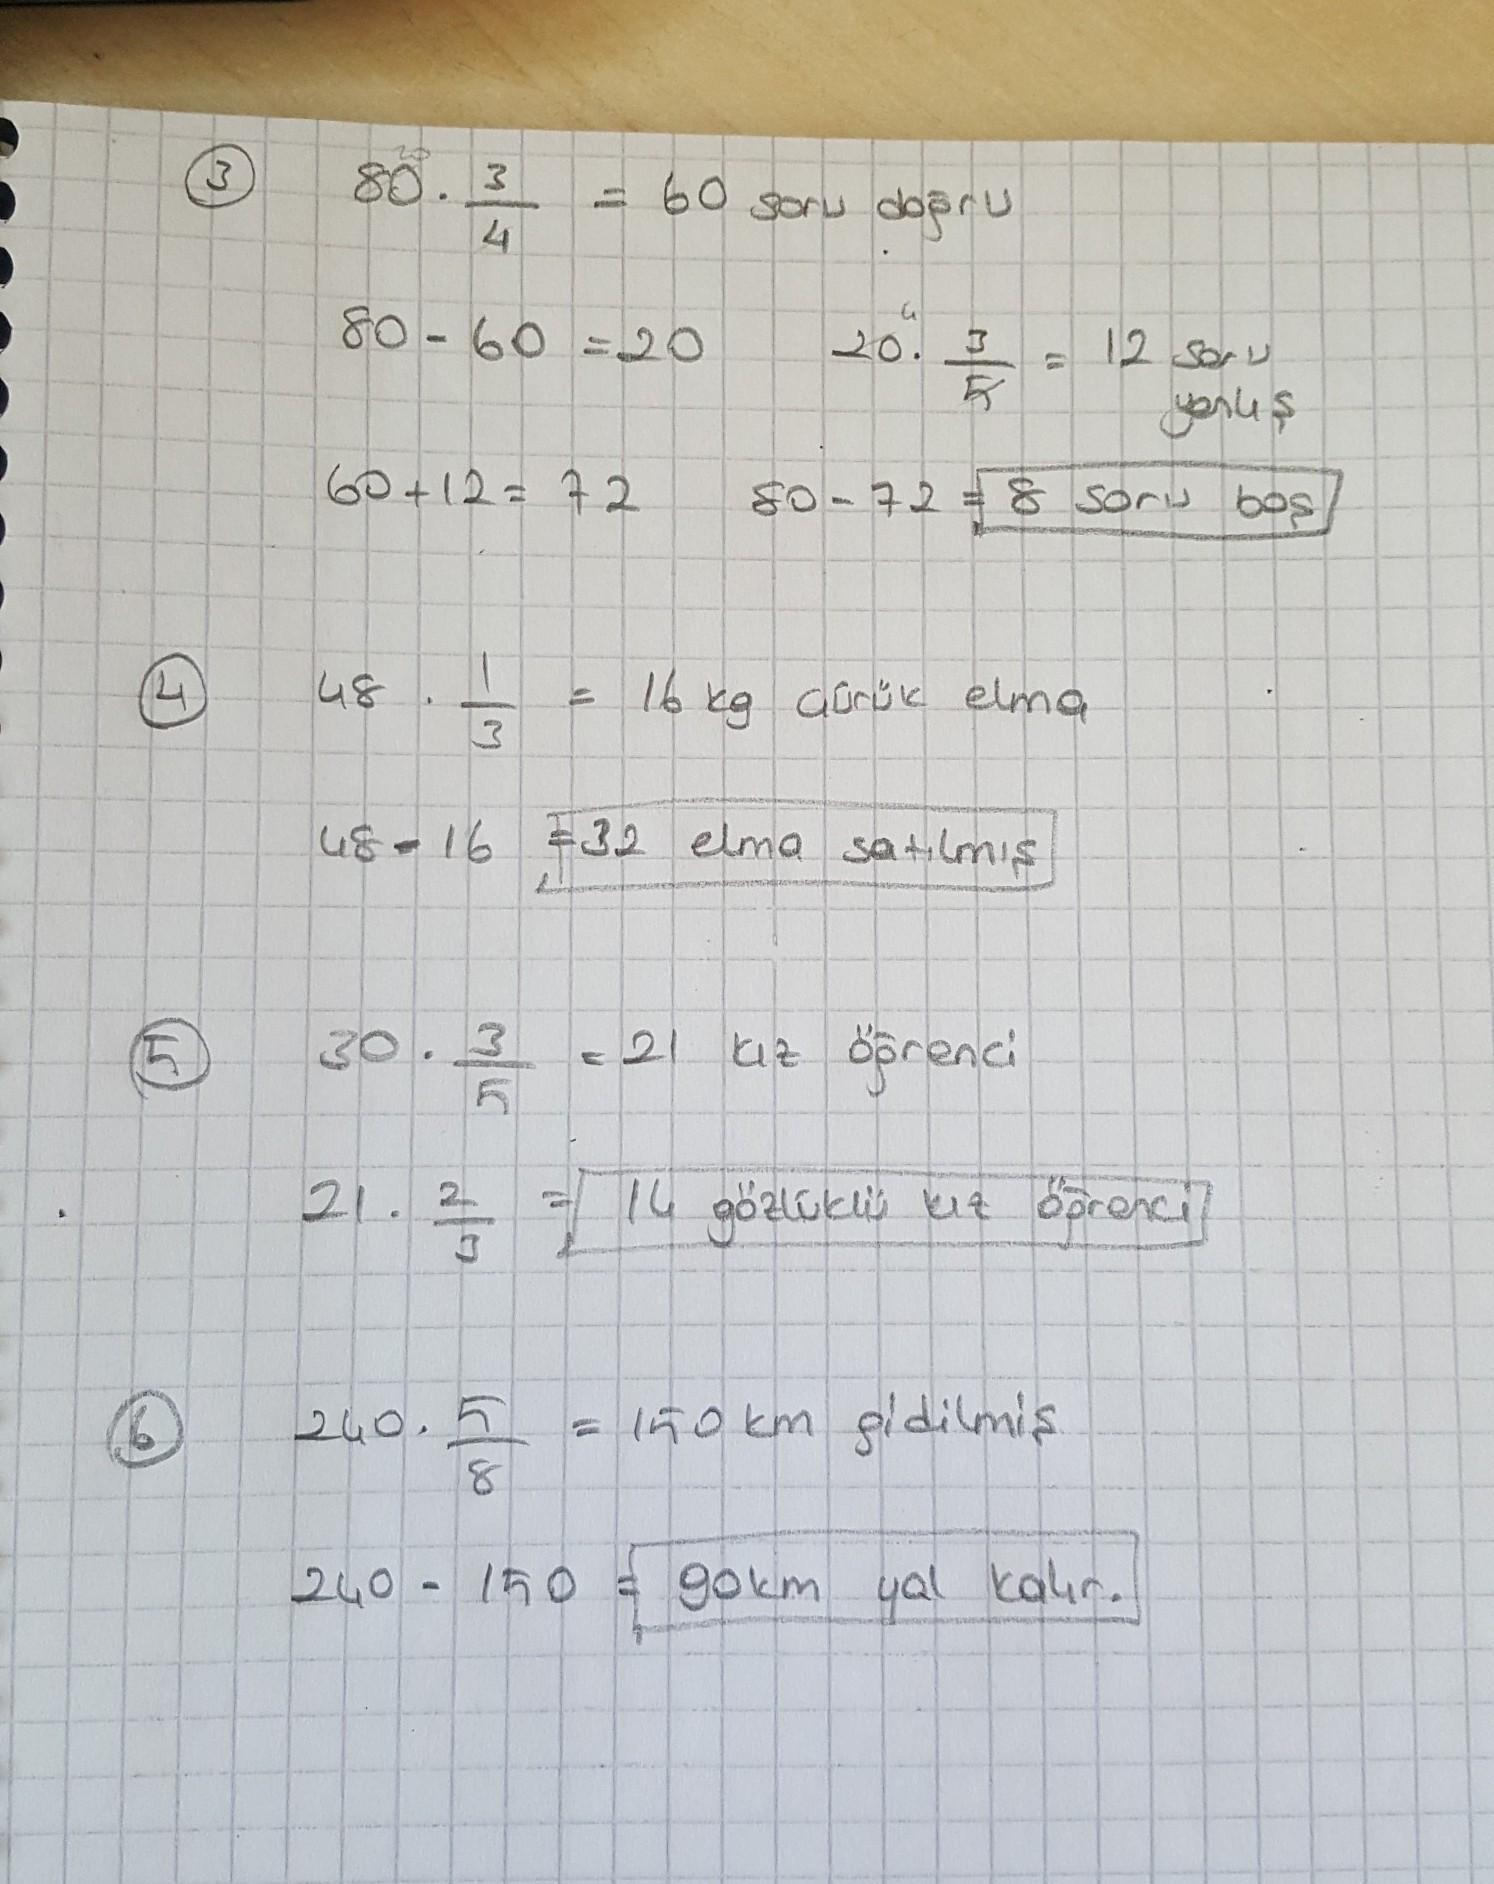 3 80 20 . 3/4 = 60 soru doğru
80 - 60 = 20 20 4 . 3/5 = 12 soru
yanlış
60 + 12 = 72 80 - 72 = 8 soru boş
4 48 . 1/3 = 16 kg çürük elma
48 - 16 = 32 elma satılmış
5 30 . 3/5 = 21 kız öğrenci
21 . 2/3 = 14 gözlüklü kız öğrenci
6 240 . 5/8 = 150 km gidilmiş
240 - 150 = 90 km yol kalır.